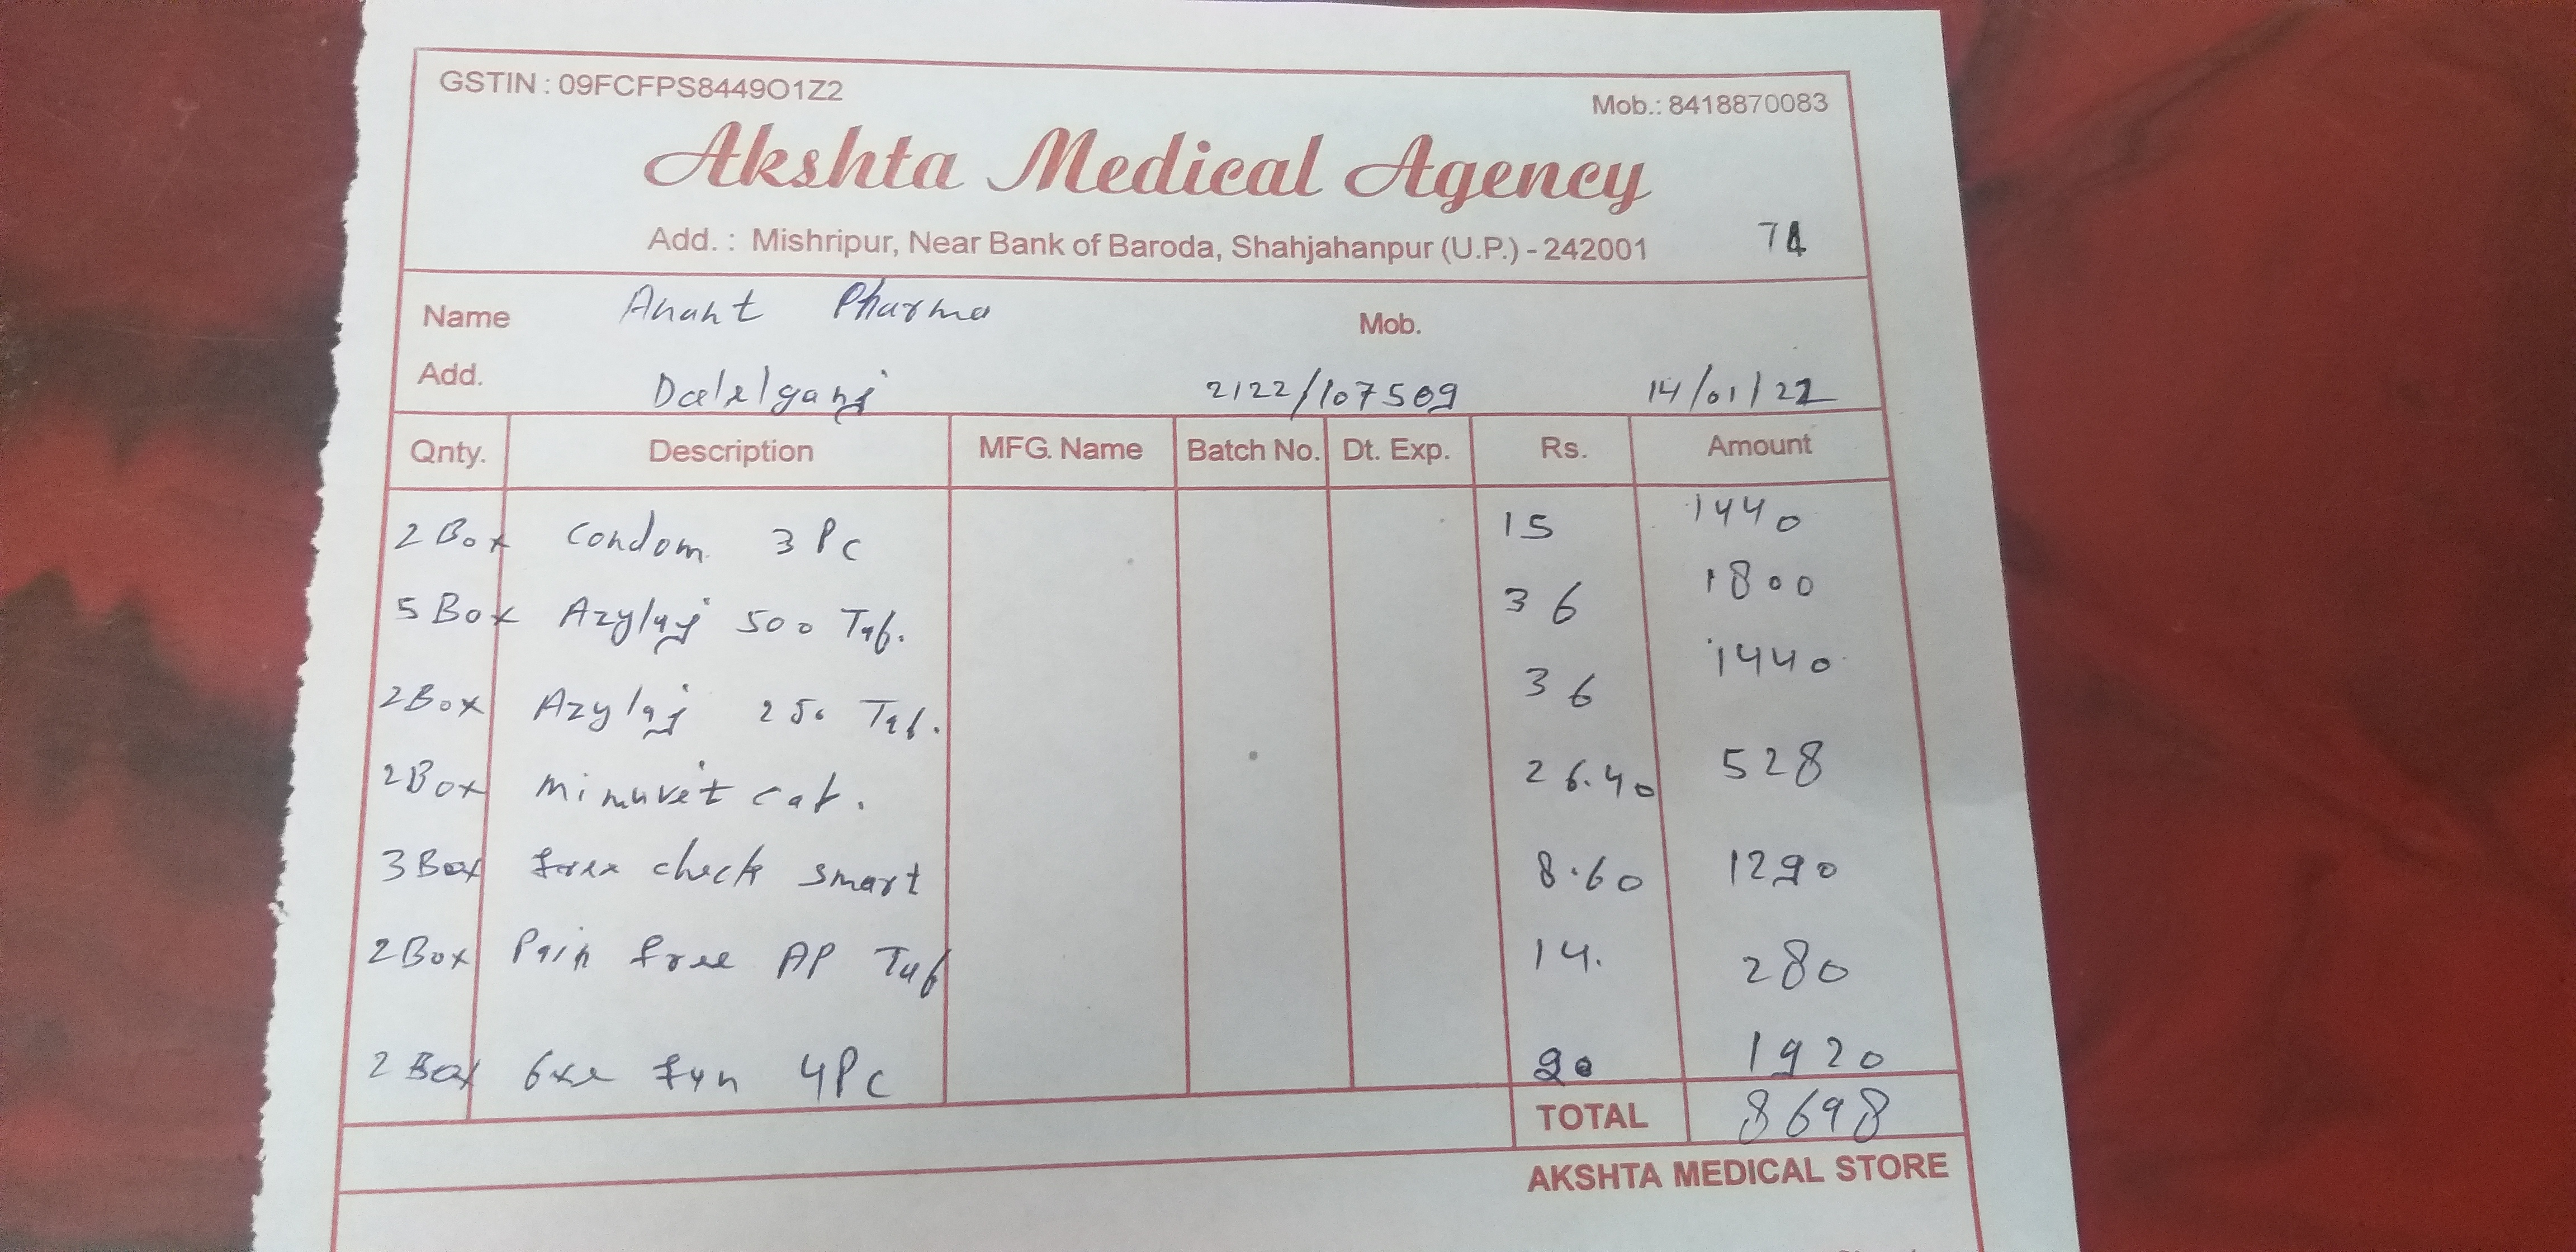 GSTIN : 09FCFPS8449O1Z2 Mob.: 8418870083
Akshta Medical Agency
Add. : Mishripur, Near Bank of Baroda, Shahjahanpur (U.P.) - 242001 74
Name Anant Pharma Mob.
Add. Dalelganj 2122/107509 14/01/22
Qnty. Description MFG. Name Batch No. Dt. Exp. Rs. Amount
2 Box Condom 3 Pc 15 1440
5 Box Azylaj 500 Tab. 36 1800
2 Box Azylaj 250 Tab. 36 1440
2 Box Minuvit cap. 26.40 528
3 Box free check smart 8.60 1290
2 Box Pain free AP Tab 14. 280
2 Box fun 4 Pc 20 1920
TOTAL 8698
AKSHTA MEDICAL STORE